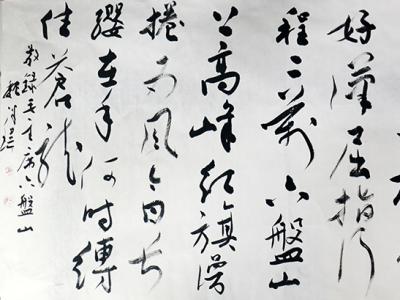 好漢屈指行
程二萬六盤山
上高峰紅旗漫
捲西風今日長
纓在手何時縛
住蒼龍
敬錄毛主席六盤山